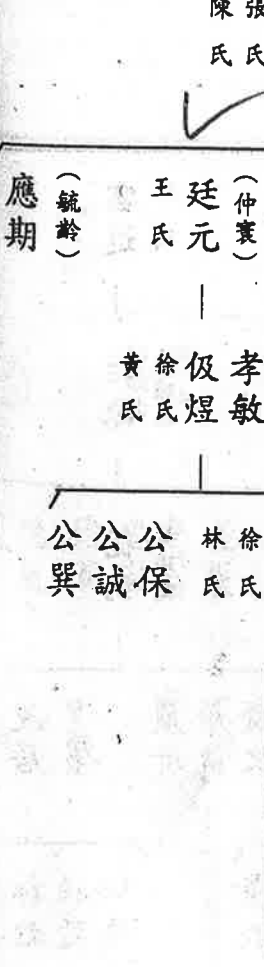 張氏
陳氏
(仲寰)
廷元
王氏
(毓齡)
應期
孝敏
伋煜
徐氏
黃氏
徐氏
林氏
公保
公誠
公巽